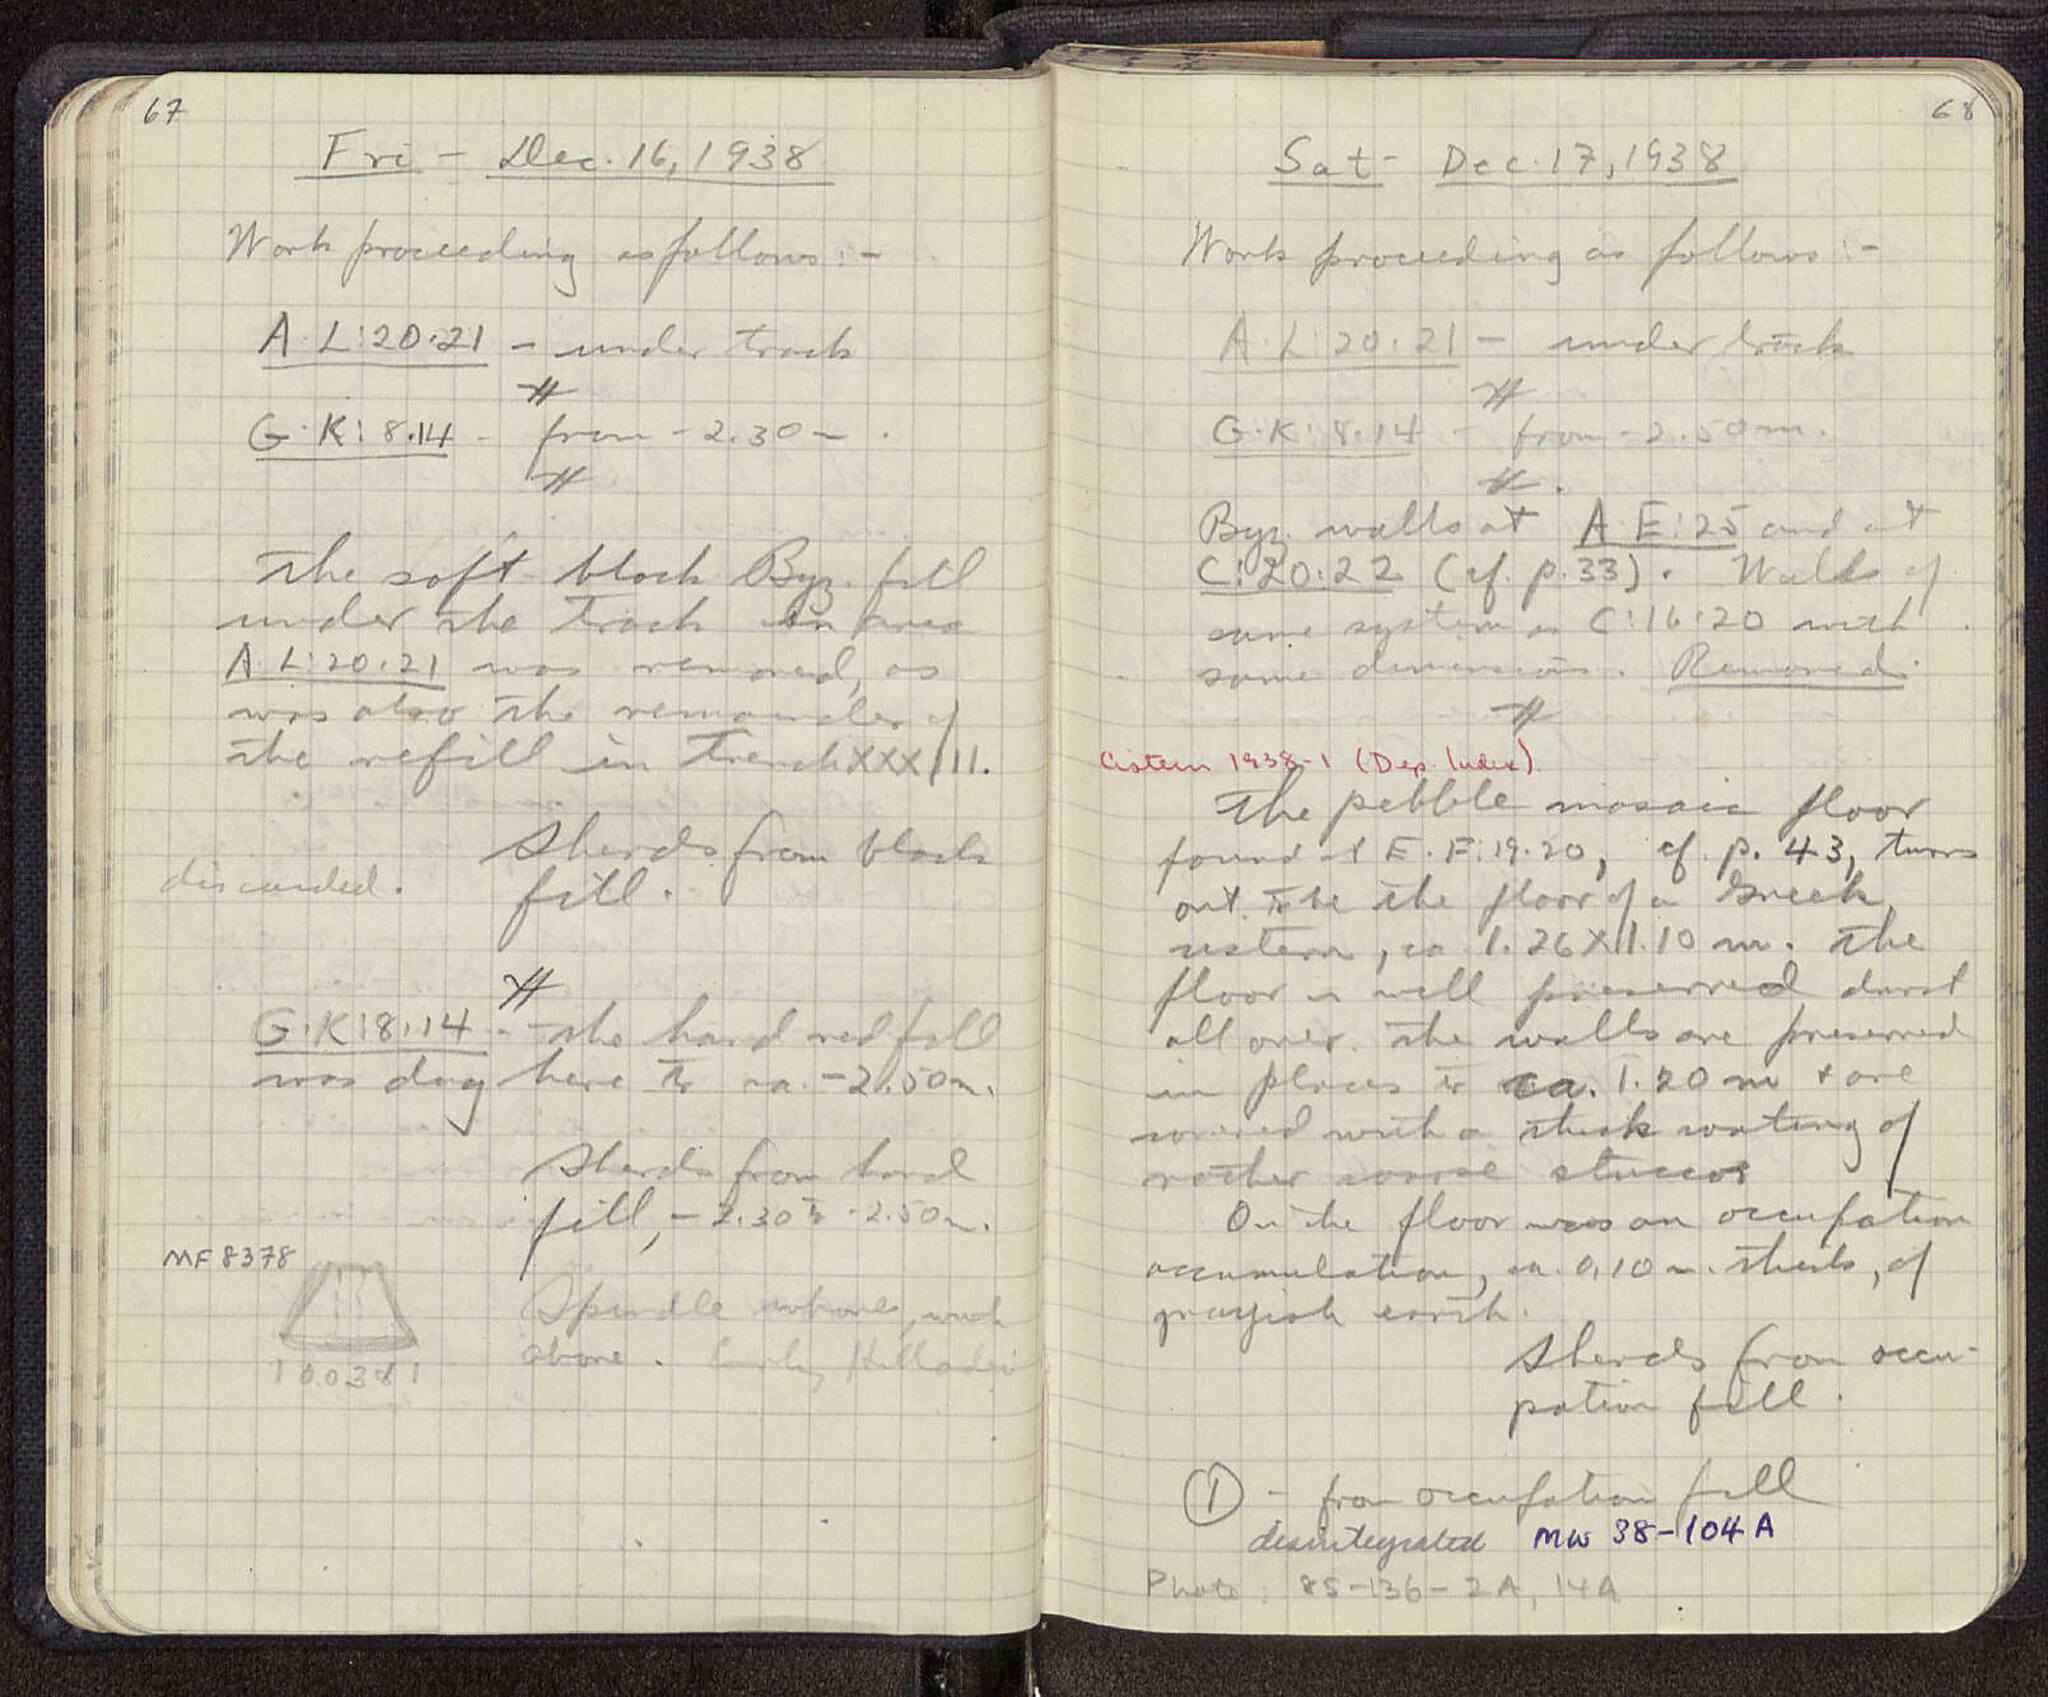 67
Fri - Dec. 16, 1938
Work proceeding as follows:-
A·L:20·21 - under track
G·K:8·14 - from -2.30m.
The soft black Byz. fill
under the track in area
A·L:20·21 was removed, as
was also the remainder of
the refill in trench XXX/11.
Sherds from black
fill.
discarded.
G·K:8·14 - The hard red fill
was dug here to ca. -2.50m.
Sherds from hard
fill, -2.30 to -2.50m.
MF 8378
Spindle whorl, with
above. Early Helladic
0.038
68
Sat - Dec. 17, 1938
Work proceeding as follows:-
A·L:20·21 - under track
G·K:8·14 - from -2.50m.
Byz. walls at A·E:25 and at
C:20:22 (cf. p. 33). Walls of
same system as C:16:20 with
same dimensions. Removed.
Cistern 1938-1 (Dep. Index).
The pebble mosaic floor
found at E·F:19·20, cf. p. 43, turns
out to be the floor of a Greek
cistern, ca 1.26 X 1.10 m. The
floor is well preserved almost
all over. The walls are preserved
in places to ca. 1.20 m + are
covered with a thick coating of
rather coarse stucco.
On the floor was an occupation
accumulation, ca. 0.10 m. thick, of
grayish earth.
Sherds from occu-
pation fill.
① - from occupation fill
disintegrated MW 38-104A
Photo: 85-136-2A, 14A